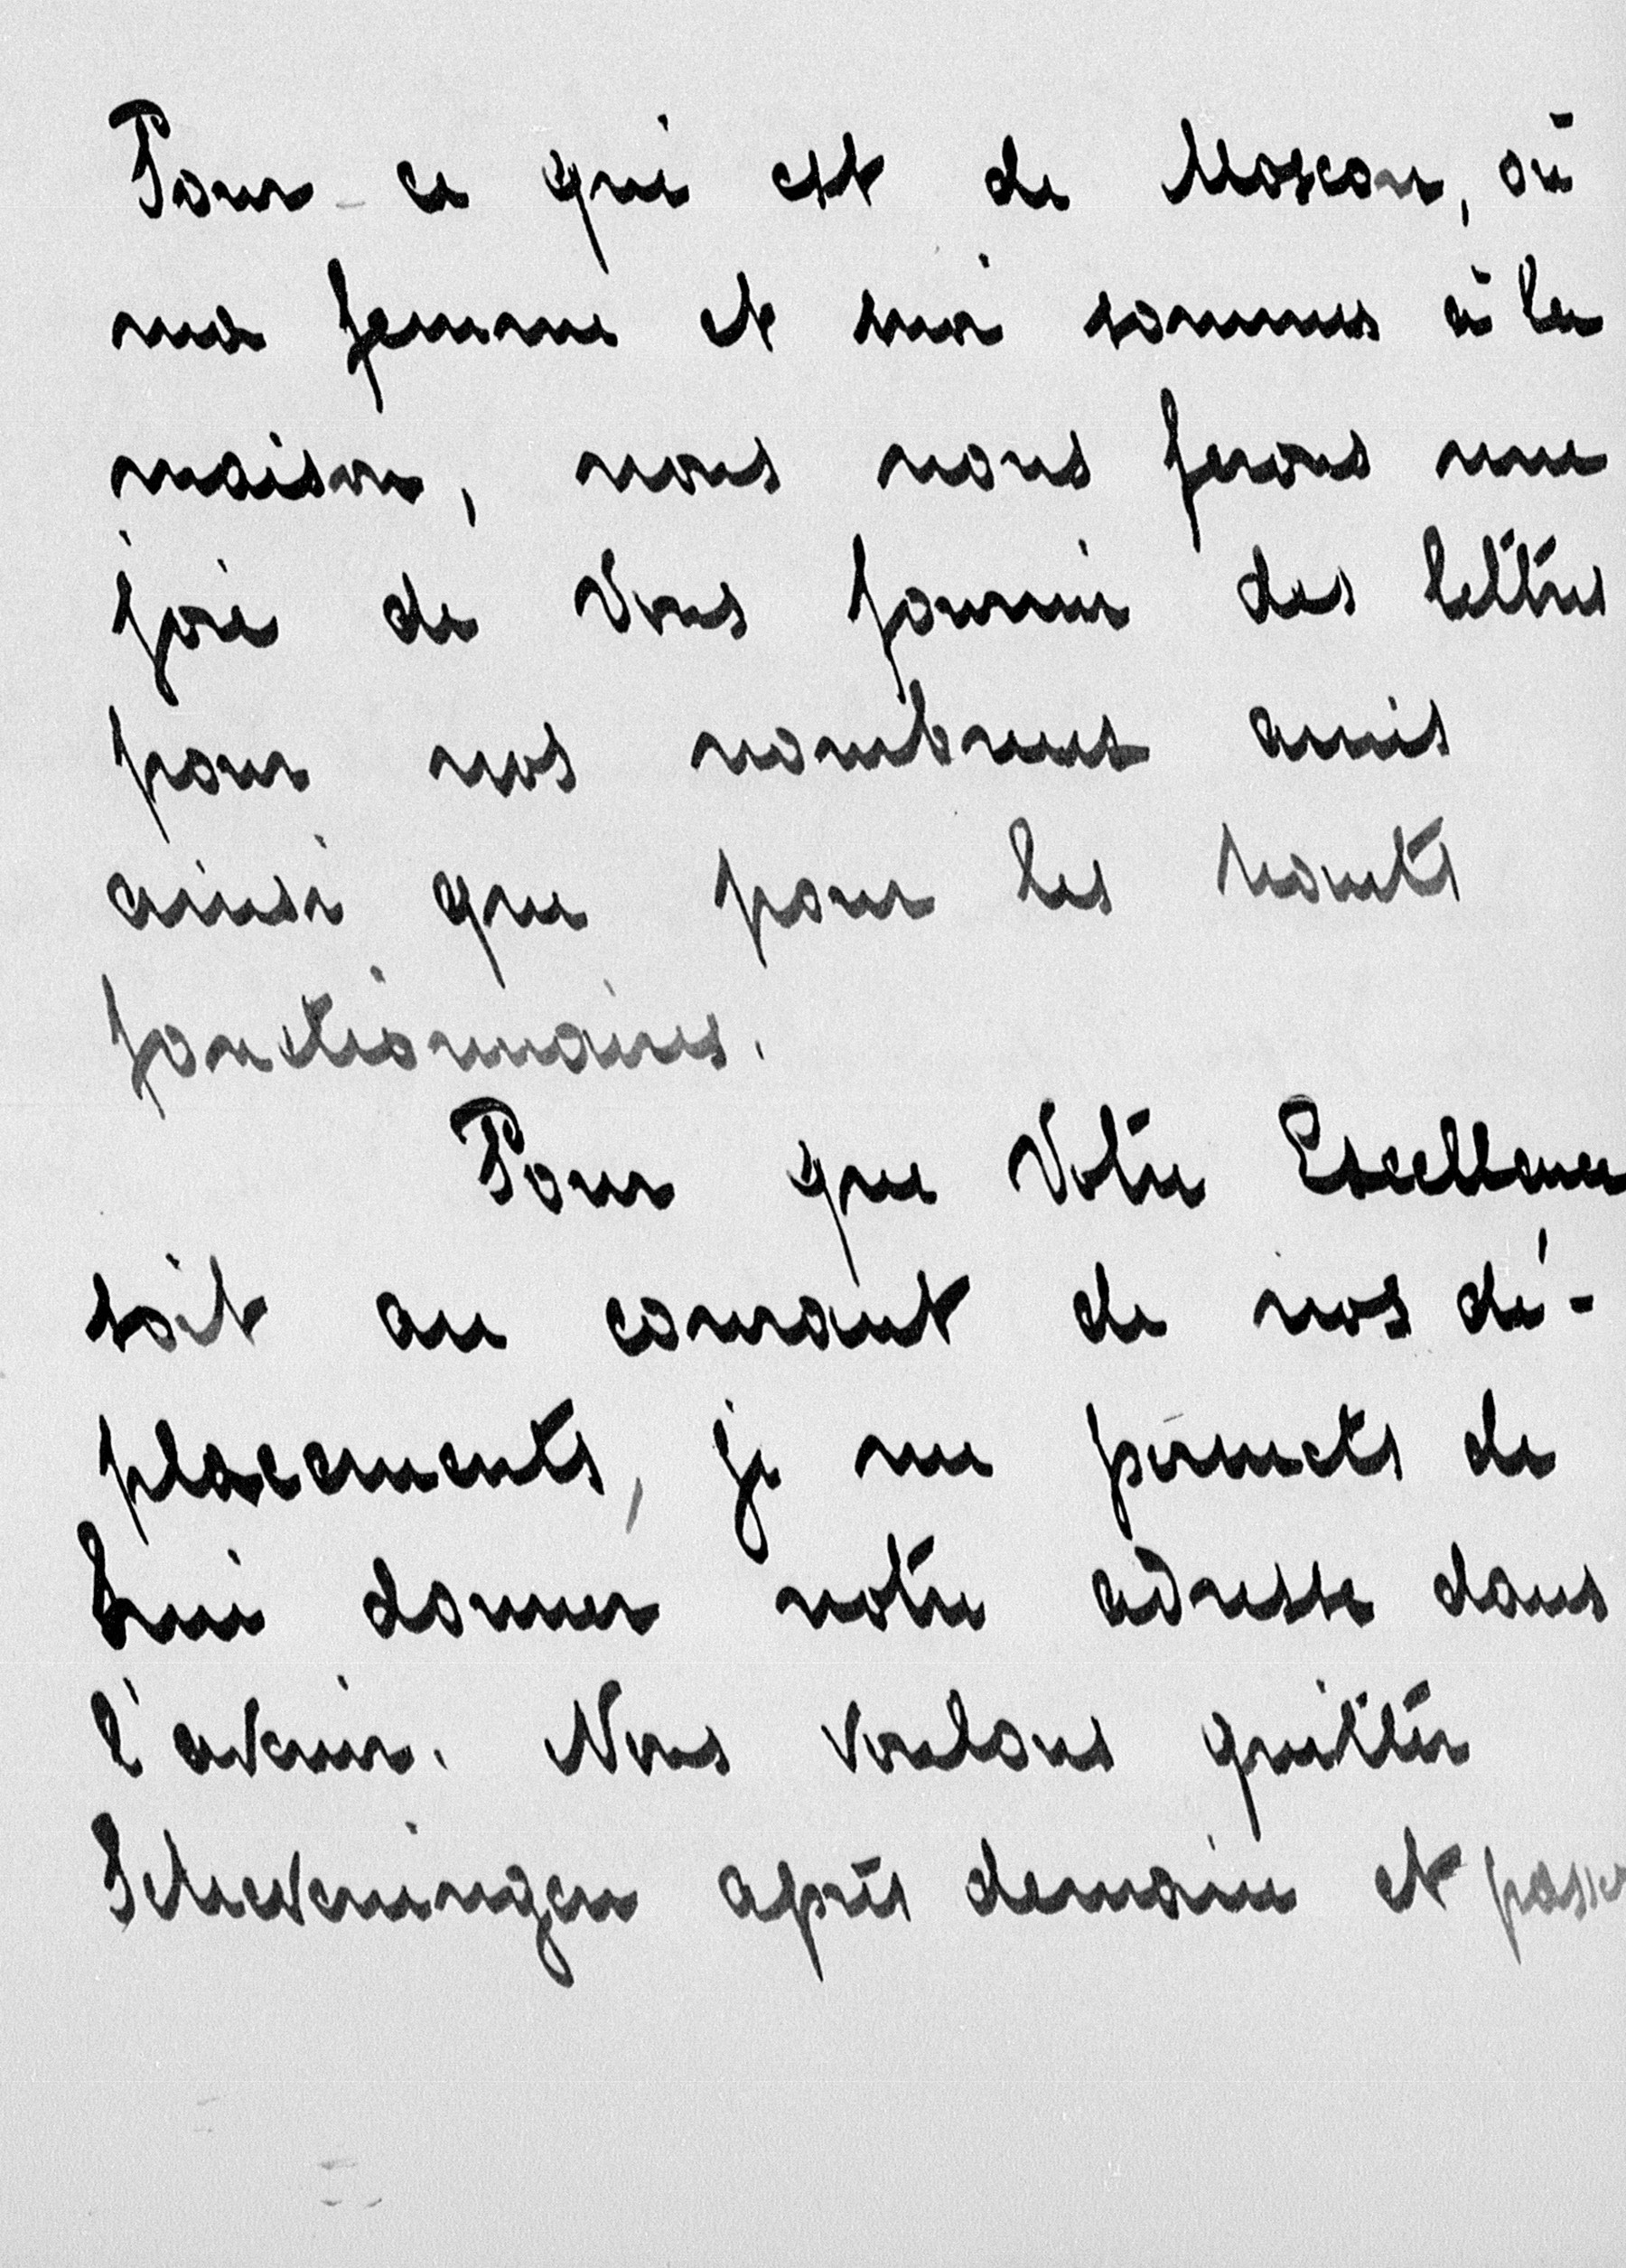 Pour ce qui est de Moscou, où
ma femme et moi sommes à la
maison, nous nous ferons une
joie de Vous fournir des lettres
pour nos nombreux amis
ainsi que pour les hauts
fonctionnaires.
Pour que Votre Excellence
soit au courant de nos dé-
placements, je me permets de
Lui donner notre adresse dans
l'avenir. Nous voulons quitter
Scheveningen après demain et passer